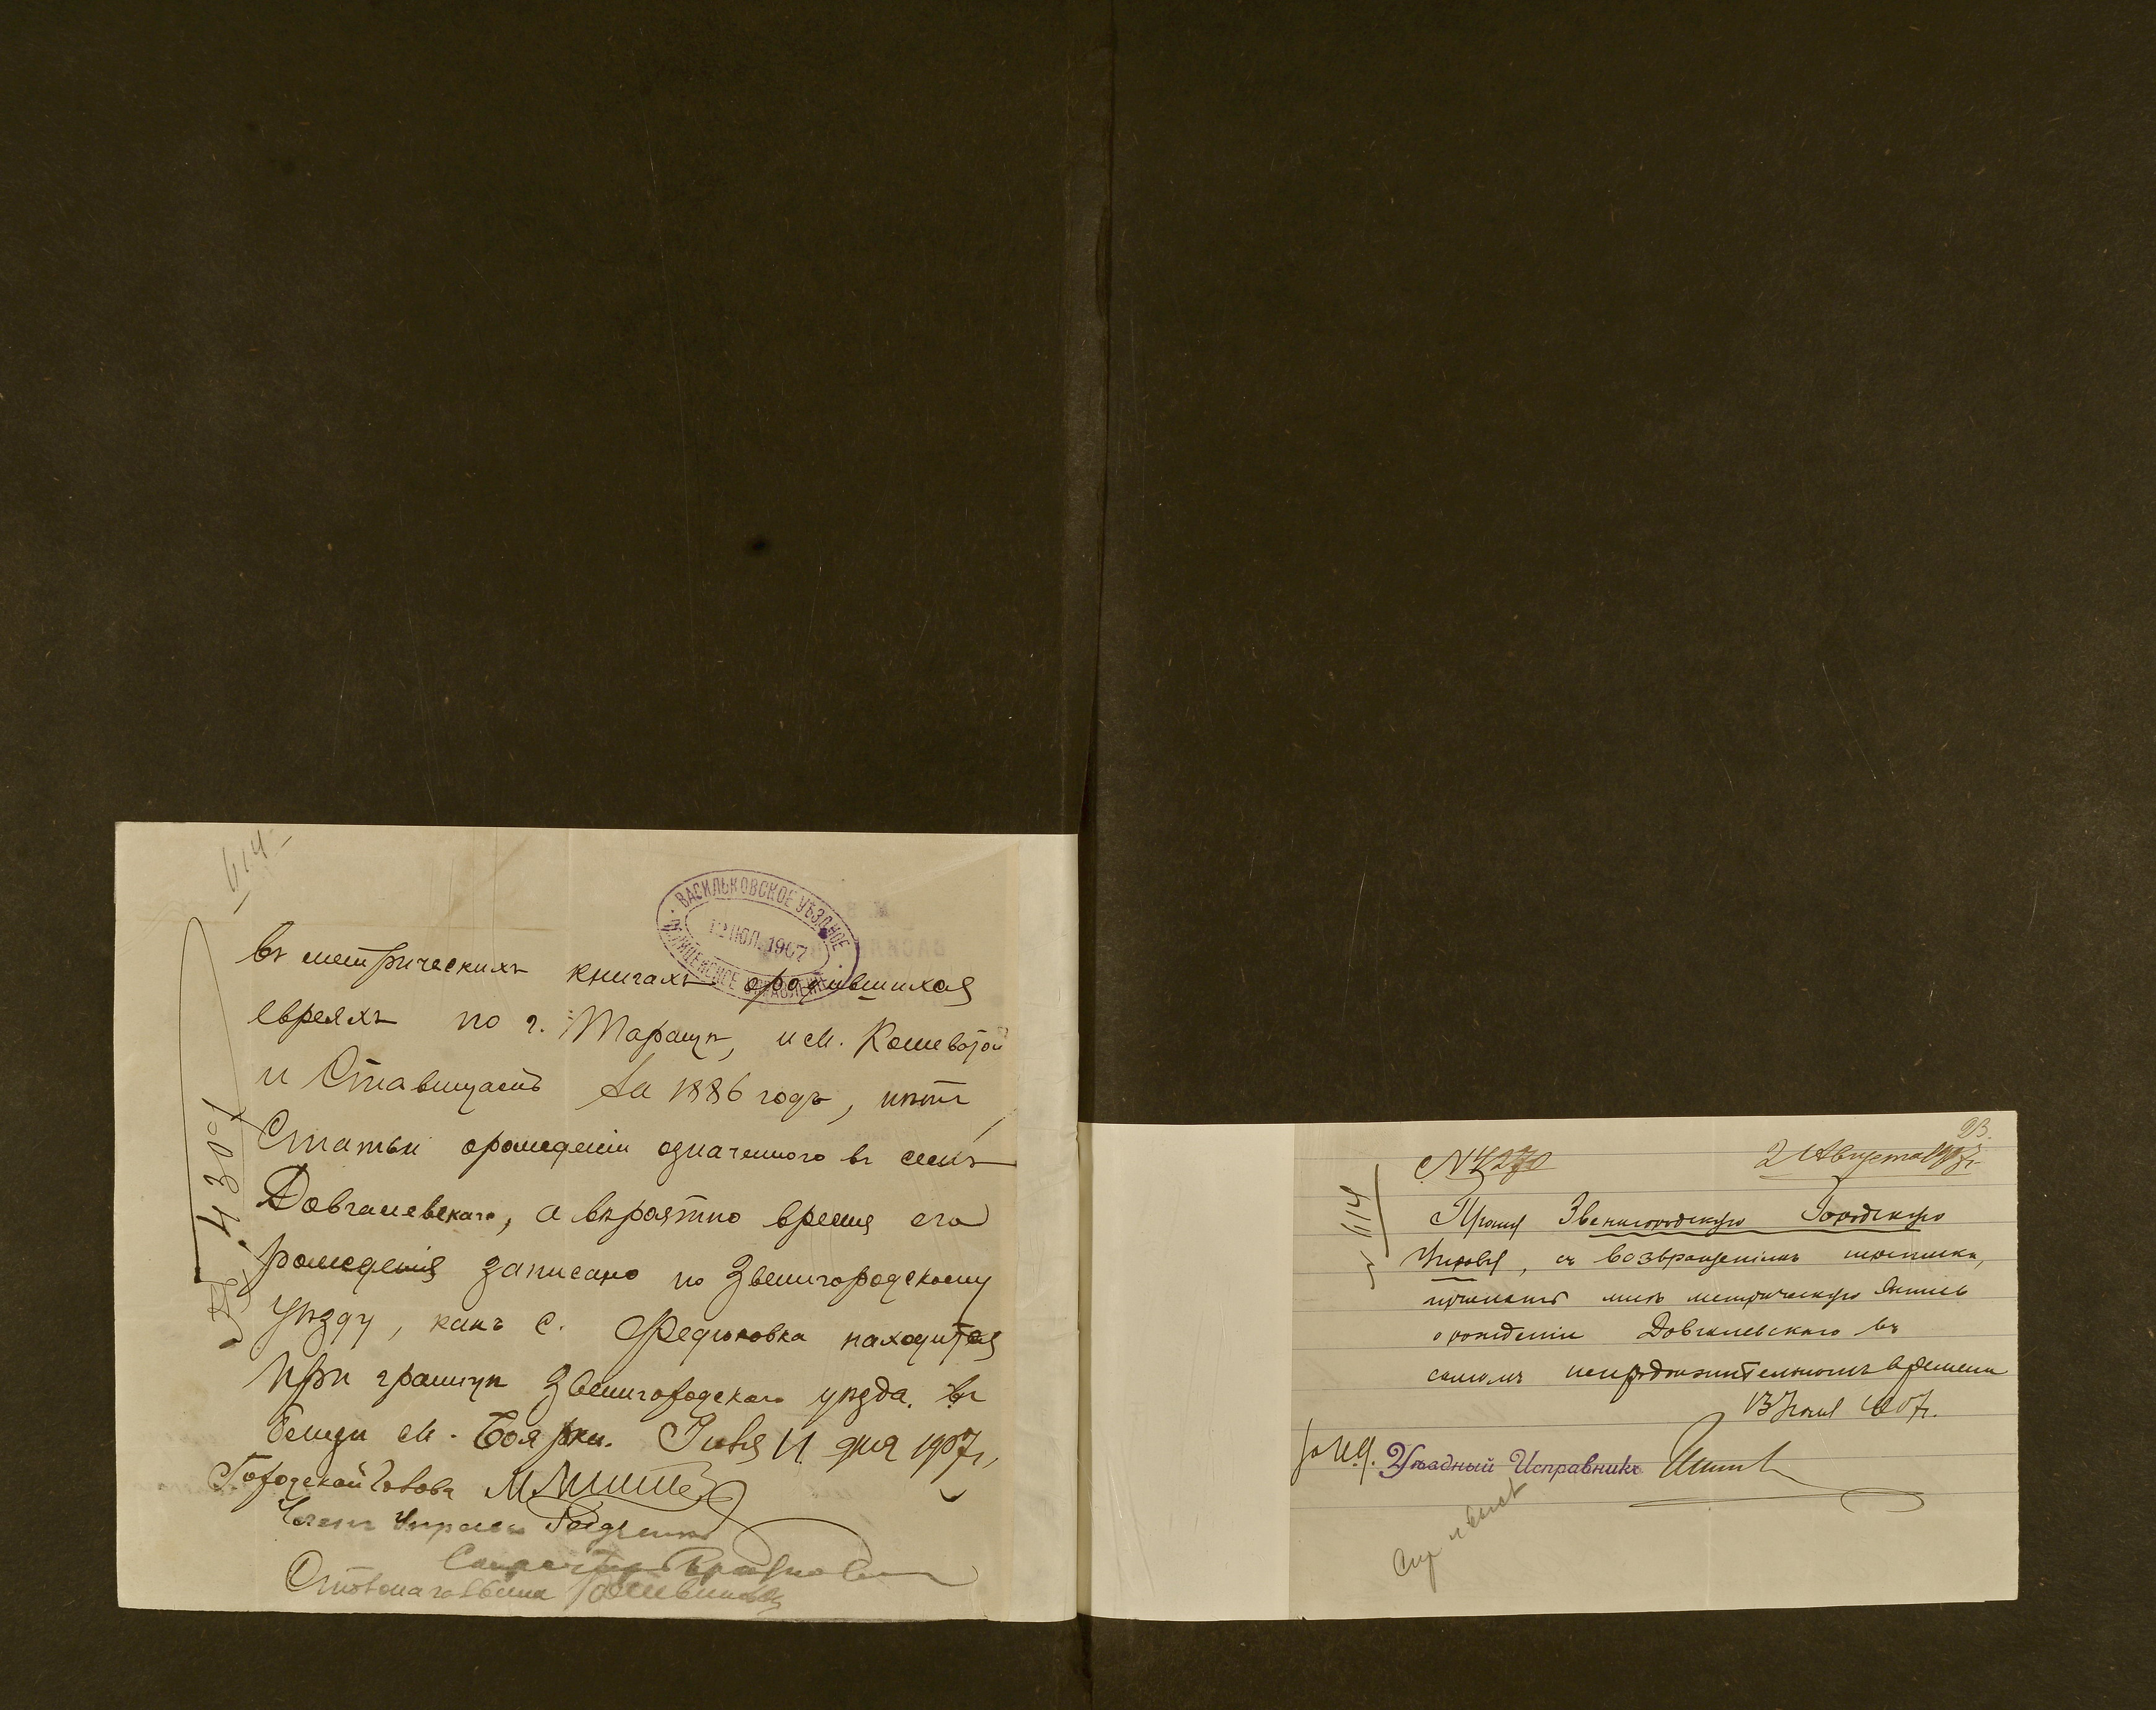 614
ВАСИЛЬКОВСКОЕ УѢЗДНОЕ
12 ІЮЛ. 1907
ПОЛИЦЕЙСКОЕ УПРАВЛЕНІЕ
въ метрическихъ книгахъ о родившихся
евреяхъ по г. Таращѣ, и м. Кошеватой
и Ставищамъ за 1886 годъ, нѣтъ
Статьи о рожденіи означеннаго въ семъ
Довгалевскаго, а вѣроятно время его
рожденія записано по Звенигородскому
уѣзду, какъ с. Федюковка находится
при границѣ Звенигородскаго уѣзда, въ
близи м. Боярки. Іюля 11 дня 1907 г.
Городской Голова
Членъ Управы
Секретарь
4309
23.
№ 4270
2 Августа 1907 г.
№ 614
Прошу Звенигородскую Городскую
Управу, съ возвращеніемъ переписки,
прислать мнѣ метрическую запись
о рожденіи Довгалевскаго въ
самомъ непродолжительномъ времени
13 Іюля 1907 г.
За И.Д. Уѣздный Исправникъ